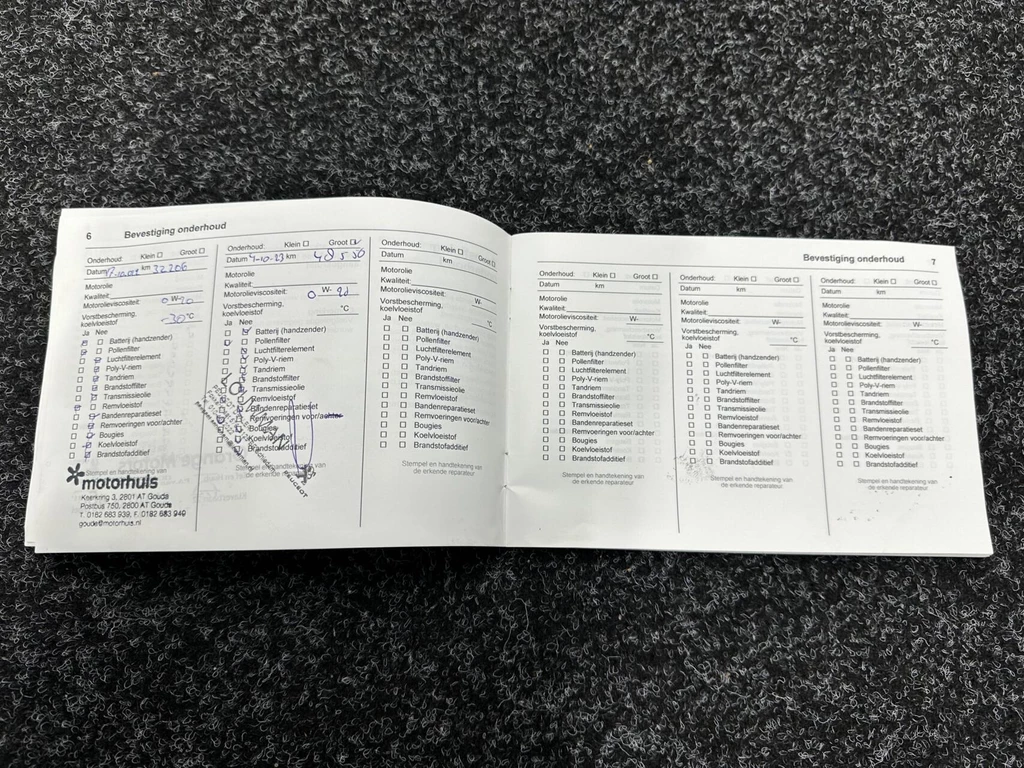 6 Bevestiging onderhoud
Onderhoud: Klein Groot
Datum km 32206
Motorolie
Kwaliteit:
Motorolieviscositeit: 0 W-20
Vorstbescherming,
koelvloeistof -30 °C
Ja Nee
Batterij (handzender)
Pollenfilter
Luchtfilterelement
Poly-V-riem
Tandriem
Brandstoffilter
Transmissieolie
Remvloeistof
Bandenreparatieset
Remvoeringen voor/achter
Bougies
Koelvloeistof
Brandstofadditief
Stempel en handtekening van
motorhuis
Keerkring 3, 2801 AT Gouda
Postbus 750, 2800 AT Gouda
T. 0182 683 939, F. 0182 683 940
gouda@motorhuis.nl
Onderhoud: Klein Groot
Datum 4-10-23 km 48550
Motorolie
Kwaliteit:
Motorolieviscositeit: 0 W-20
Vorstbescherming,
koelvloeistof °C
Ja Nee
Batterij (handzender)
Pollenfilter
Luchtfilterelement
Poly-V-riem
Tandriem
Brandstoffilter
Transmissieolie
Remvloeistof
Bandenreparatieset
Remvoeringen voor/achter
Bougies
Koelvloeistof
Brandstofadditief
Stempel en handtekening van
de erkende reparateur
Onderhoud: Klein Groot
Datum km
Motorolie
Kwaliteit:
Motorolieviscositeit: W-
Vorstbescherming,
koelvloeistof °C
Ja Nee
Batterij (handzender)
Pollenfilter
Luchtfilterelement
Poly-V-riem
Tandriem
Brandstoffilter
Transmissieolie
Remvloeistof
Bandenreparatieset
Remvoeringen voor/achter
Bougies
Koelvloeistof
Brandstofadditief
Stempel en handtekening van
de erkende reparateur
Bevestiging onderhoud 7
Onderhoud: Klein Groot
Datum km
Motorolie
Kwaliteit:
Motorolieviscositeit: W-
Vorstbescherming,
koelvloeistof °C
Ja Nee
Batterij (handzender)
Pollenfilter
Luchtfilterelement
Poly-V-riem
Tandriem
Brandstoffilter
Transmissieolie
Remvloeistof
Bandenreparatieset
Remvoeringen voor/achter
Bougies
Koelvloeistof
Brandstofadditief
Stempel en handtekening van
de erkende reparateur
Onderhoud: Klein Groot
Datum km
Motorolie
Kwaliteit:
Motorolieviscositeit: W-
Vorstbescherming,
koelvloeistof °C
Ja Nee
Batterij (handzender)
Pollenfilter
Luchtfilterelement
Poly-V-riem
Tandriem
Brandstoffilter
Transmissieolie
Remvloeistof
Bandenreparatieset
Remvoeringen voor/achter
Bougies
Koelvloeistof
Brandstofadditief
Stempel en handtekening van
de erkende reparateur
Onderhoud: Klein Groot
Datum km
Motorolie
Kwaliteit:
Motorolieviscositeit: W-
Vorstbescherming,
koelvloeistof °C
Ja Nee
Batterij (handzender)
Pollenfilter
Luchtfilterelement
Poly-V-riem
Tandriem
Brandstoffilter
Transmissieolie
Remvloeistof
Bandenreparatieset
Remvoeringen voor/achter
Bougies
Koelvloeistof
Brandstofadditief
Stempel en handtekening van
de erkende reparateur